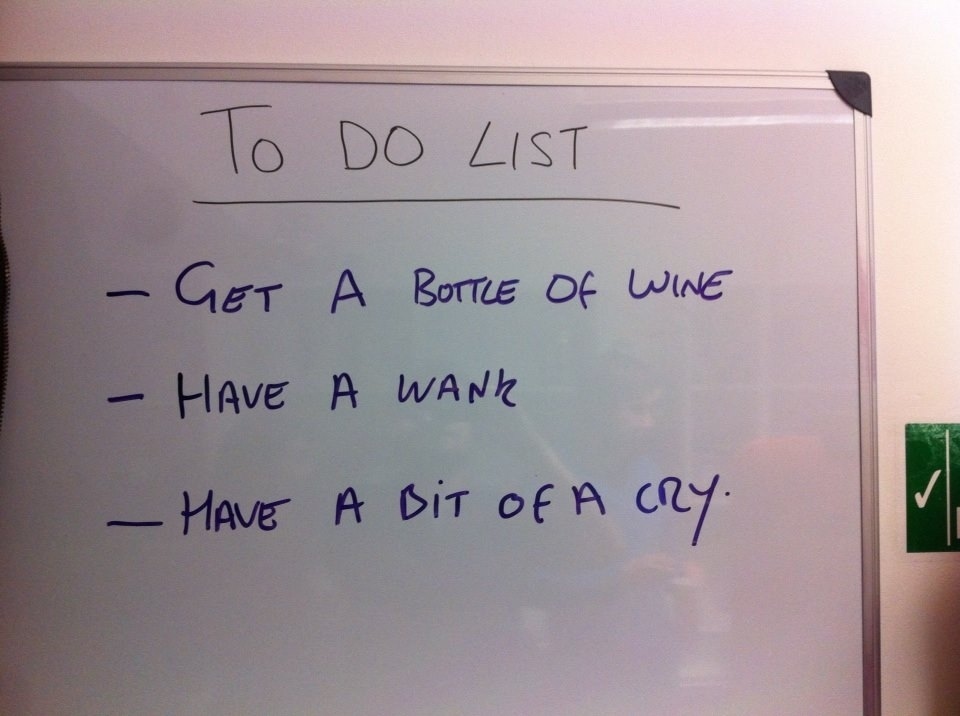 TO DO LIST
- GET A BOTTLE OF WINE
- HAVE A WANK
- HAVE A BIT OF A CRY.